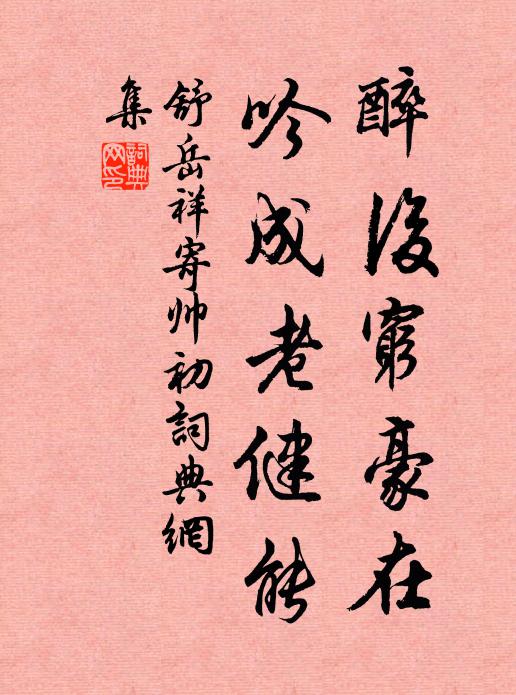 醉後窮豪在
吟成老健能
舒岳祥寄帅初詞典網
集
詞典
网印